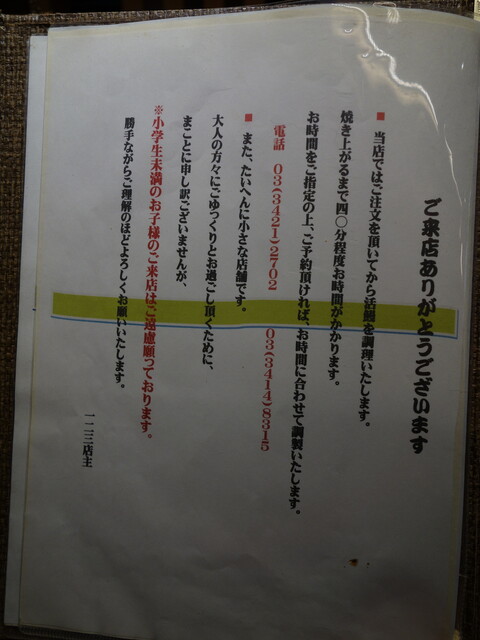 ご来店ありがとうございます
■ 当店ではご注文を頂いてから活鰻を調理いたします。
焼き上がるまで四〇分程度お時間がかかります。
お時間をご指定の上、ご予約頂ければ、お時間に合わせて調製いたします。
電話 03(3421)2702 03(3414)8315
■ また、たいへんに小さな店舗です。
大人の方々にごゆっくりとお過ごし頂くために、
まことに申し訳ございませんが、
※小学生未満のお子様のご来店はご遠慮願っております。
勝手ながらご理解のほどよろしくお願いいたします。
一二三店主